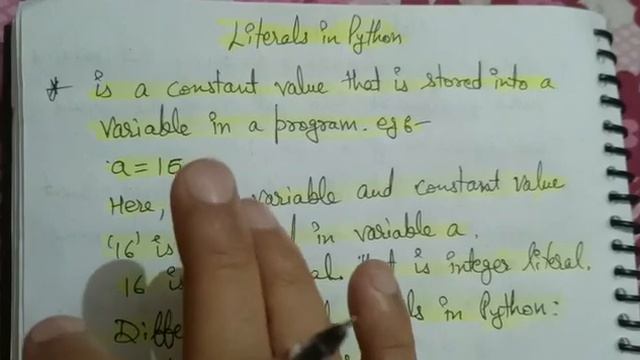 Literals in Python
* is a constant value that is stored into a
variable in a program. eg:-
a = 16
Here, variable and constant value
'16' is in variable a.
16 is that is integer literal.
in Python: